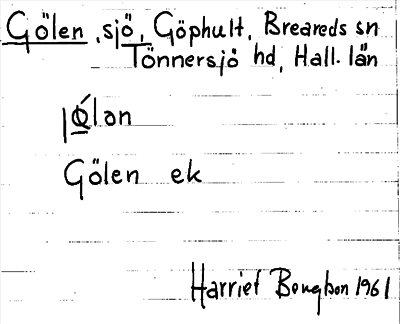 Gölen, sjö, Göphult, Breareds sn
Tönnersjö hd, Hall. län
Gölen ek
Harriet 1961